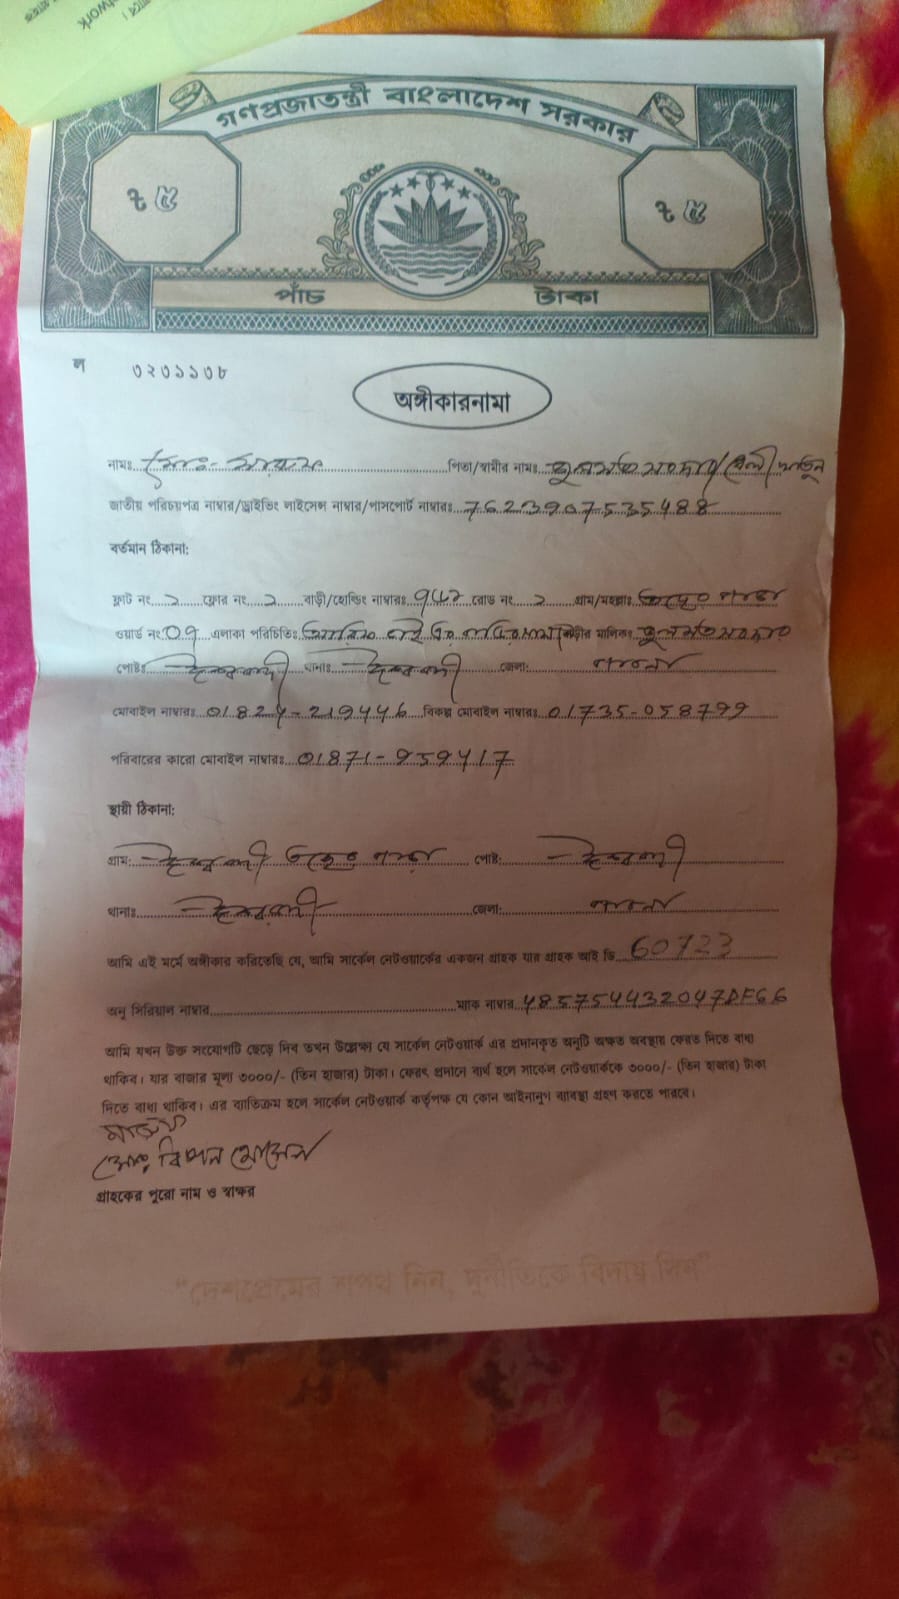 work
গণপ্রজাতন্ত্রী বাংলাদেশ সরকার
৳ ৫
৳ ৫
পাঁচ টাকা
ল ৩২৩১১৩৮
অঙ্গীকারনামা
নামঃ পিতা/স্বামীর নামঃ
জাতীয় পরিচয়পত্র নাম্বার/ড্রাইভিং লাইসেন্স নাম্বার/পাসপোর্ট নাম্বারঃ 7623907535488
বর্তমান ঠিকানা:
ফ্লাট নং ফ্লোর নং বাড়ী/হোল্ডিং নাম্বারঃ রোড নং গ্রাম/মহল্লাঃ
ওয়ার্ড নং 09 এলাকা পরিচিতিঃ বাড়ীর মালিকঃ
পোষ্টঃ ঈশ্বরদী থানাঃ ঈশ্বরদী জেলা: পাবনা
মোবাইল নাম্বারঃ 01824-219446 বিকল্প মোবাইল নাম্বারঃ 01735-058799
পরিবারের কারো মোবাইল নাম্বারঃ 01871-959417
স্থায়ী ঠিকানা:
গ্রাম: ঈশ্বরদী পোষ্ট: ঈশ্বরদী
থানাঃ ঈশ্বরদী জেলা: পাবনা
আমি এই মর্মে অঙ্গীকার করিতেছি যে, আমি সার্কেল নেটওয়ার্কের একজন গ্রাহক যার গ্রাহক আই ডি 60723
অনু সিরিয়াল নাম্বার ম্যাক নাম্বার 485754432047DF66
আমি যখন উক্ত সংযোগটি ছেড়ে দিব তখন উল্লেক্ষ্য যে সার্কেল নেটওয়ার্ক এর প্রদানকৃত অনুটি অক্ষত অবস্থায় ফেরত দিতে বাধ্য
থাকিব। যার বাজার মূল্য ৩০০০/- (তিন হাজার) টাকা। ফেরৎ প্রদানে ব্যর্থ হলে সার্কেল নেটওয়ার্ককে ৩০০০/- (তিন হাজার) টাকা
দিতে বাধ্য থাকিব। এর ব্যতিক্রম হলে সার্কেল নেটওয়ার্ক কর্তৃপক্ষ যে কোন আইনানুগ ব্যবস্থা গ্রহণ করতে পারবে।
হোসেন
গ্রাহকের পুরো নাম ও স্বাক্ষর
"দেশপ্রেমের শপথ নিন, দুর্নীতিকে বিদায় দিন"